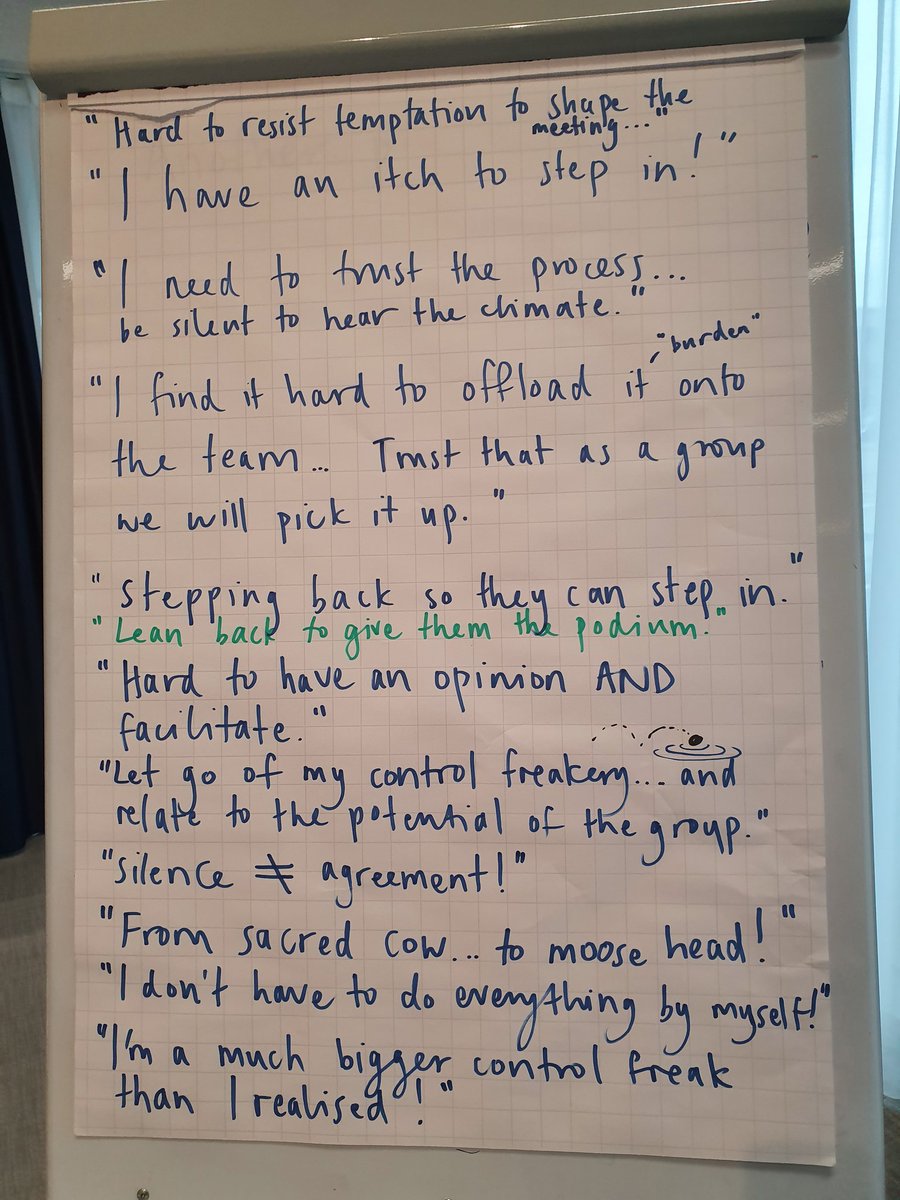 "Hard to resist temptation to shape the
meeting..."
"I have an itch to step in!"
"I need to trust the process...
be silent to hear the climate."
"burden"
"I find it hard to offload it onto
the team... Trust that as a group
we will pick it up."
"Stepping back so they can step in."
"Lean back to give them the podium."
"Hard to have an opinion AND
facilitate."
"Let go of my control freakery... and
relate to the potential of the group."
"silence ≠ agreement!"
"From sacred cow... to moose head!"
"I don't have to do everything by myself!"
"I'm a much bigger control freak
than I realised!"